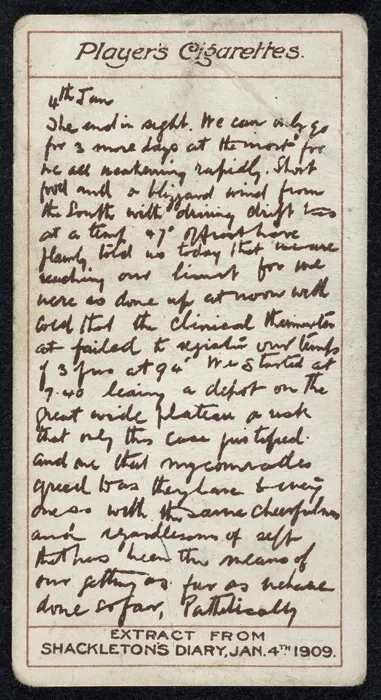 Player's Cigarettes.
4th Jan
The end in sight. We can only go
for 3 more days at the most for
we all weakening rapidly. Short
food and a blizzard wind from
the South with driving drift has
at a temp 47° of frost have
plainly told us today that we are
reaching our limit for we
were so done up at noon with
cold that the clinical thermometer
at failed to register our temps
of 3 of us at 94° We started at
7.40 leaving a depot on the
great wide plateau a risk
that only this case justified.
and one that my comrades
greed to as they have to every
one so with the same cheerfulness
and regardlessness of self
that has been the means of
our getting as far as we have
done so far, Pathetically
EXTRACT FROM
SHACKLETON'S DIARY, JAN. 4TH 1909.